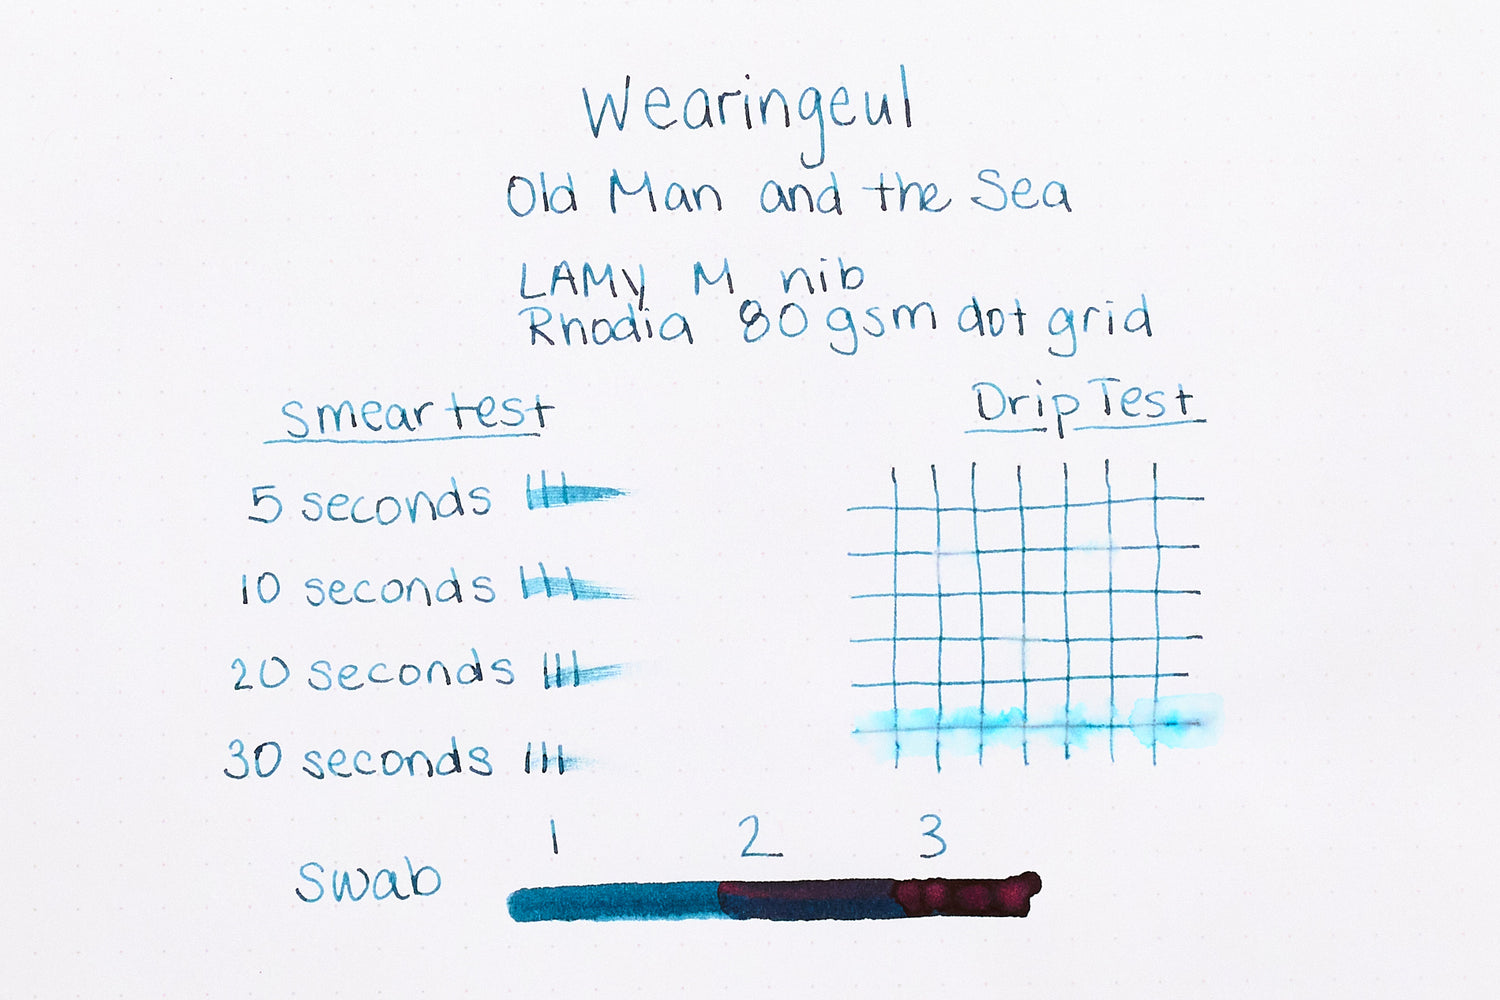 Wearingeul
Old Man and the Sea
LAMY M nib
Rhodia 80 gsm dot grid
Smear test
5 seconds
10 seconds
20 seconds
30 seconds
Drip Test
1 2 3
Swab